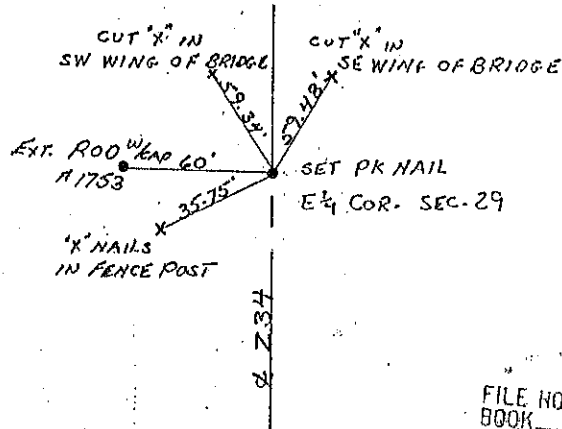 CUT "X" IN
SW WING OF BRIDGE
CUT "X" IN
SE WING OF BRIDGE
59.34'
59.48'
EXT. ROD W/CAP
# 1753
60'
SET PK NAIL
E 1/4 COR. SEC. 29
35.75'
"X" NAILS
IN FENCE POST
℄ 234
FILE NO
BOOK